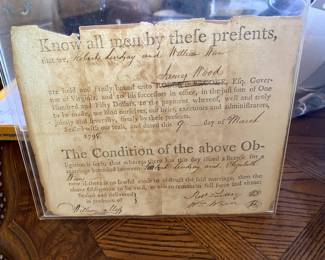 Know all men by these presents,
that we, Robert Lindsay and William Wier
James Wood
are held and firmly bound unto ROBERT BROOKE, Esq. Gover-
nor of Virginia, and to his successors in office, in the just sum of One
Hundred and Fifty Dollars, to the payment whereof, well and truly
to be made, we bind ourselves, our heirs, executors and administrators,
jointly and severally, firmly by these presents.
Sealed with our seals, and dated this 9 day of March
179
The Condition of the above Ob-
ligation is such, that whereas there has this day issued a license for a
marriage intended between Robert Lindsay and Elizabeth
now if there is no lawful cause to obstruct the said marriage, then the
above obligation to be void, or else to remain in full force and virtue:
Sealed and delivered
in presence of
William